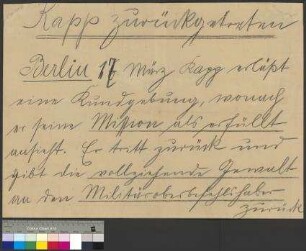 Kapp zurückgetreten
Berlin 17 März Kapp erläßt
eine Kundgebung, wonach
er seine Mission als erfüllt
ansieht. Er tritt zurück und
gibt die vollziehende Gewalt
an den Militäroberbefehlshaber
zurück